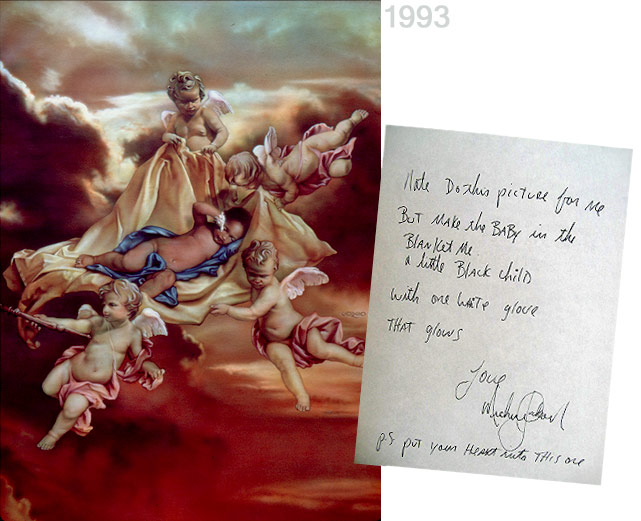 1993
Nate Do this picture for me
But Make the BABy in the
Blanket Me.
a little Black child
With one White glove
THAT glows
Love
Michael Jackson
p.s put your HeArt into THis one